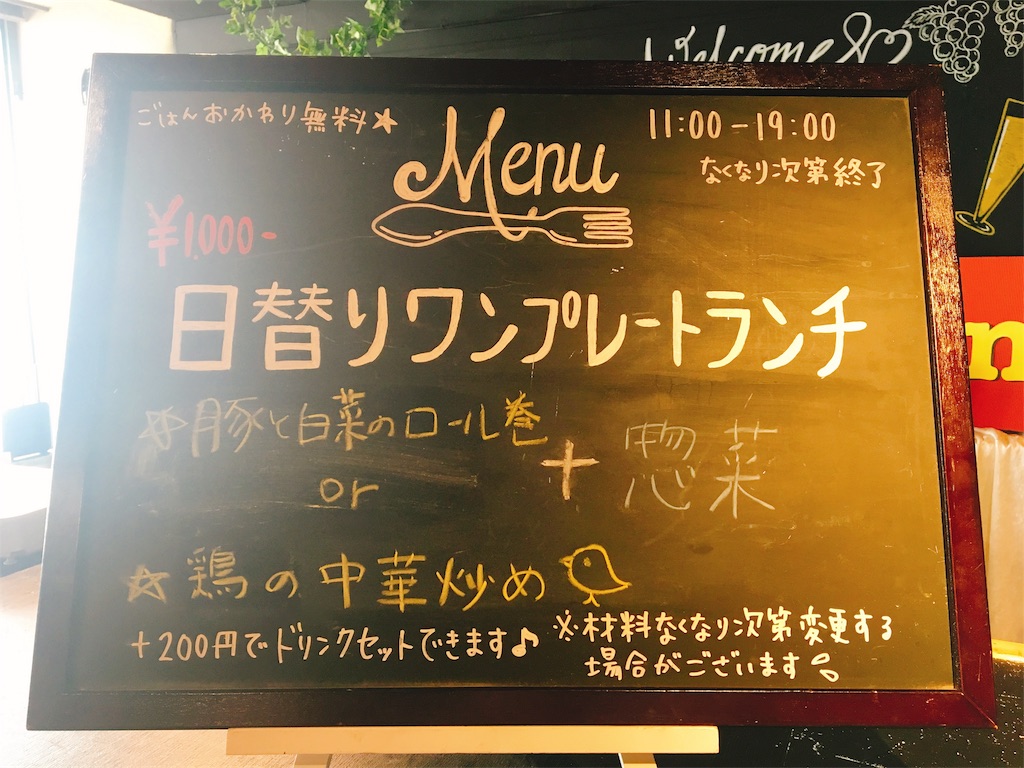 Welcome
ごはんおかわり無料★
Menu
11:00-19:00
なくなり次第終了
¥1,000-
日替りワンプレートランチ
☆豚と白菜のロール巻
or
+ 惣菜
☆鶏の中華炒め
+200円でドリンクセットできます♪
※材料なくなり次第変更する
場合がございます
n